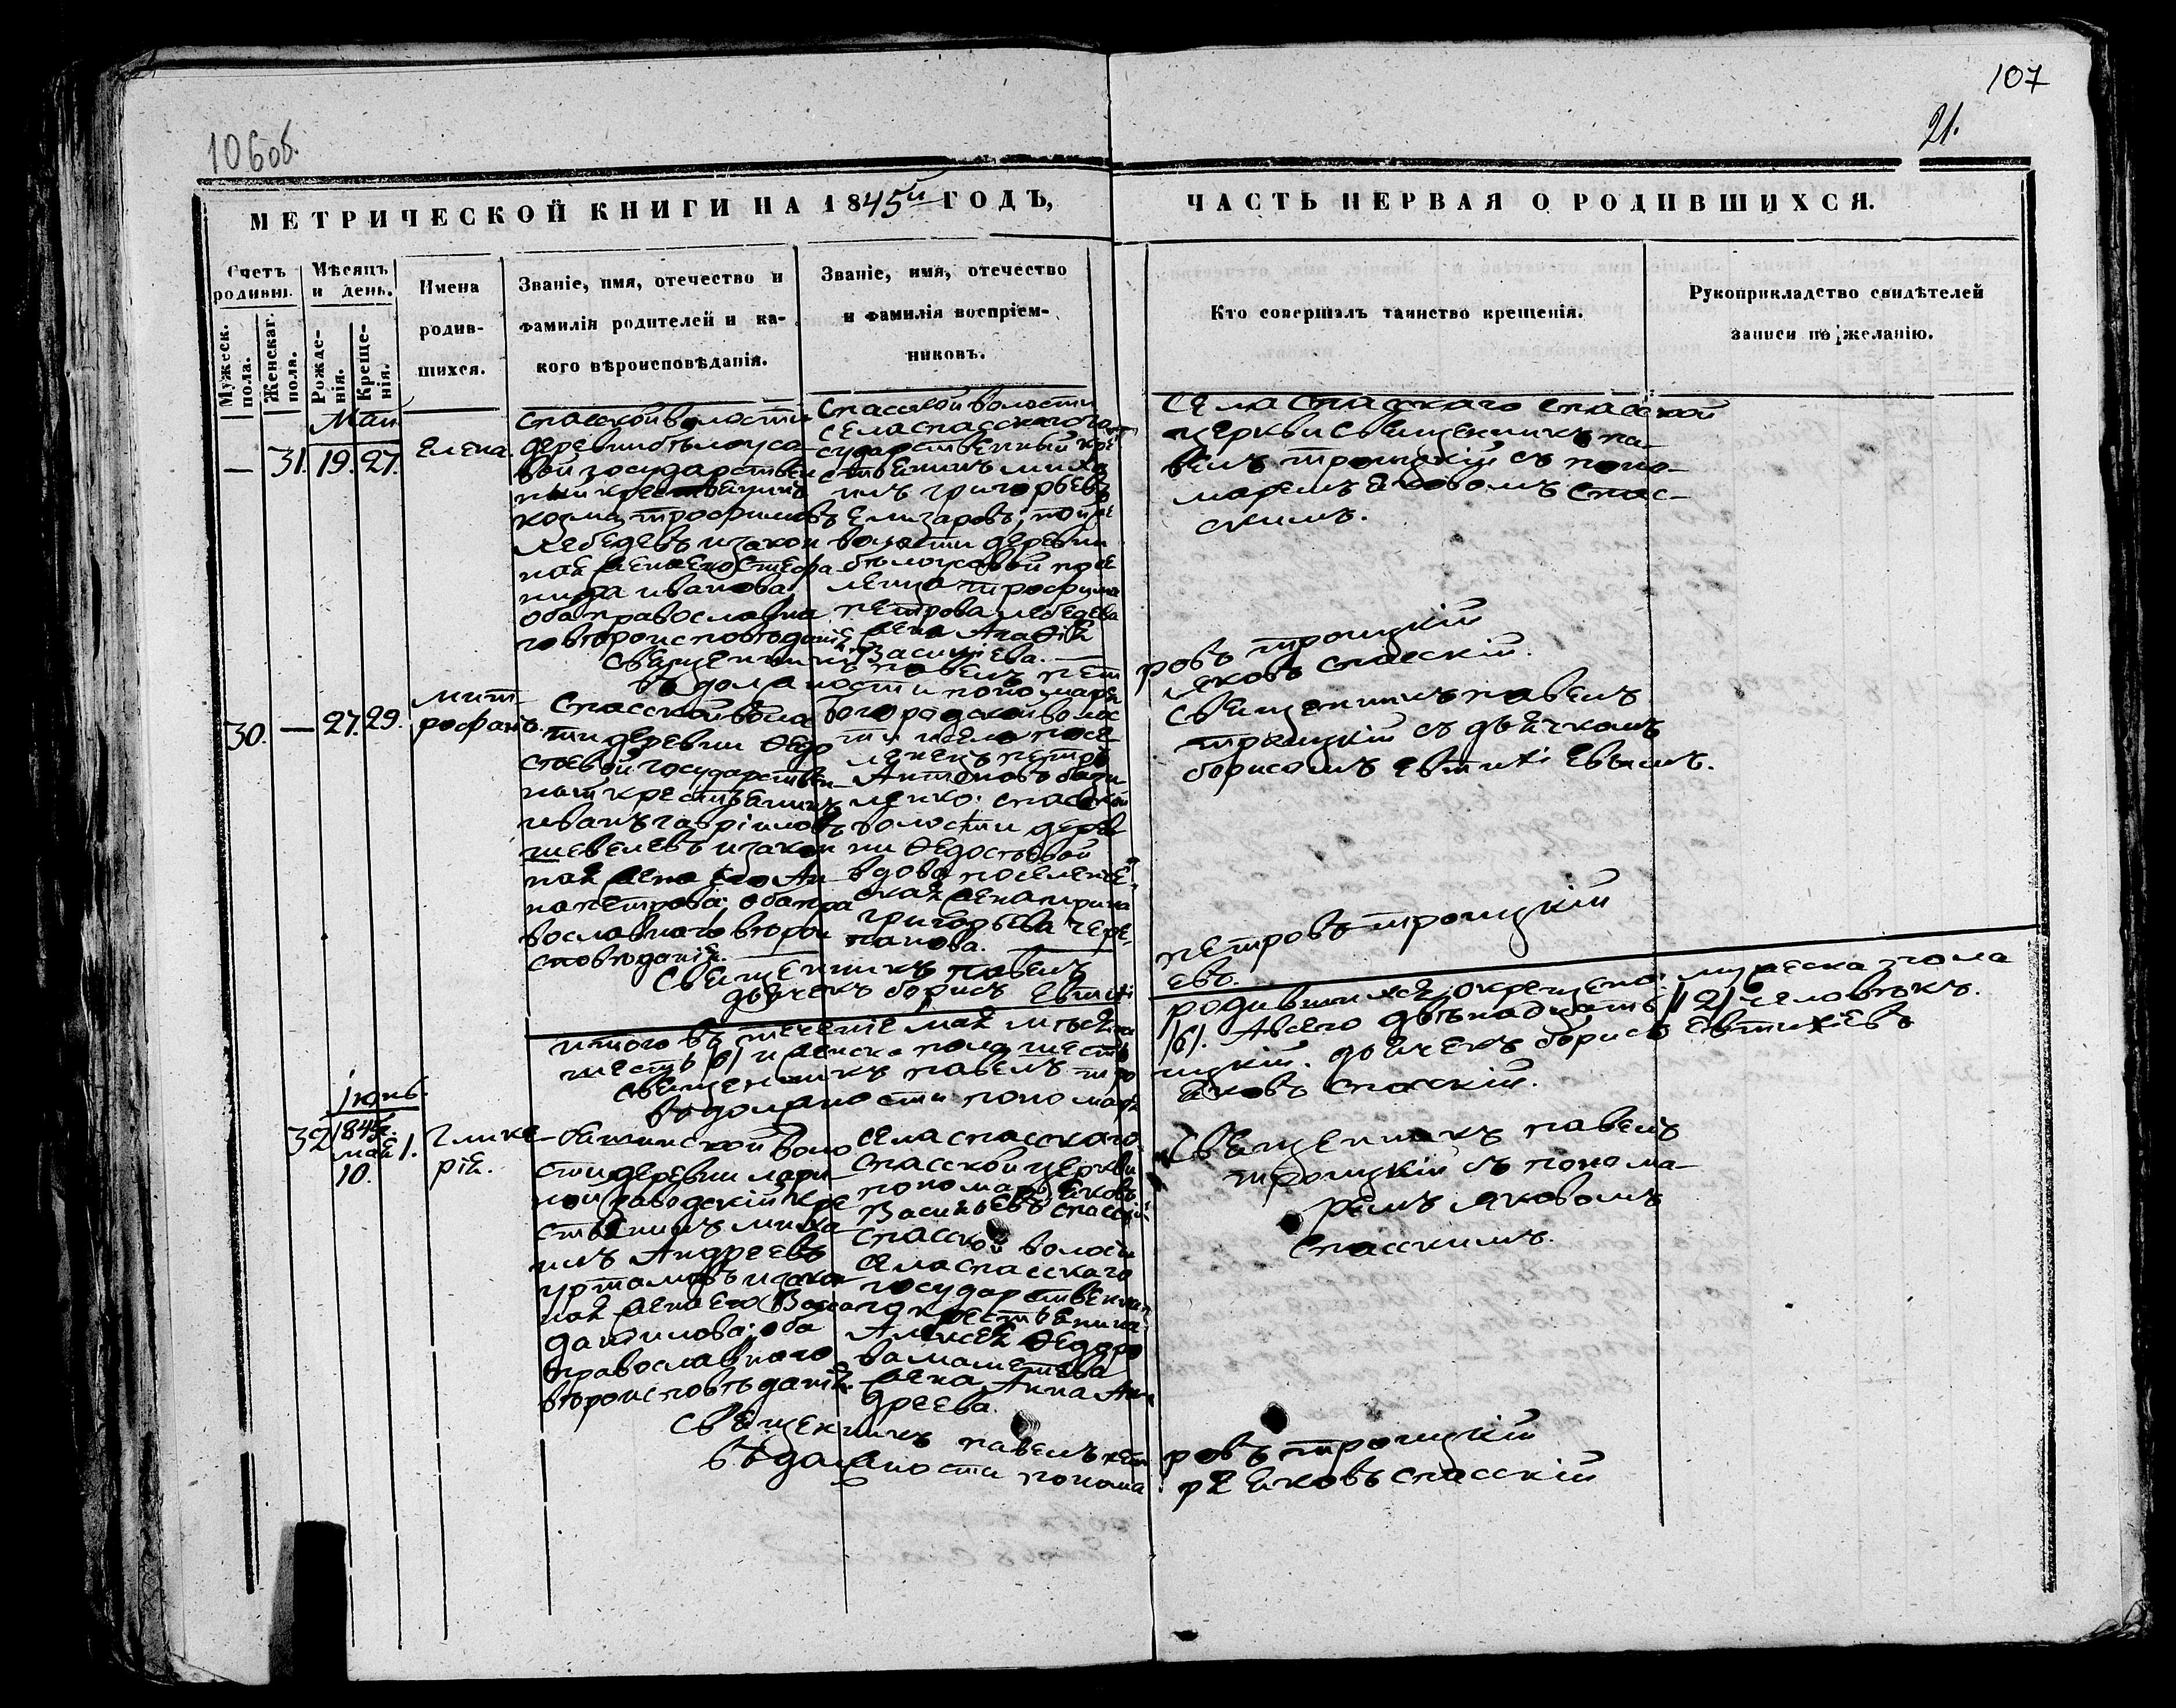 107
21.
106 об.
МЕТРИЧЕСКОЙ КНИГИ НА 1845й ГОДЪ,
ЧАСТЬ ПЕРВАЯ О РОДИВШИХСЯ.
Счетъ родивш.
Мужеск. пола.
Женскаг. пола.
Мѣсяцъ и день.
Рожде-
нія.
Креще-
нія.
Имена
родив-
шихся.
Званіе, имя, отечество и
фамилія родителей и ка-
кого вѣроисповѣданія.
Званіе, имя, отечество
и фамилія воспріем-
никовъ.
Кто совершалъ таинство крещенія.
Рукоприкладство свидѣтелей
записи по желанію.
Май
— 31. 19. 27.
Елена.
Спасской волости
деревни бѣлоусо-
вой государствен
ный крестьянинъ
козма трофимовъ
лебедевъ и закон
ная жена его Стефа
нида иванова,
оба православна
го вѣроисповѣданія
Спасской волости
села спасскаго го
сударственный кре
стьянинъ миха
илъ григорьевъ
Елизаровъ; той же
волости деревни
бѣлоусовой посе
ленца трофима
петрова лебедева
жена
Васильева.
Села Спасскаго спасской
церкви священникъ па-
велъ троицкій съ поно-
маремъ яковомъ спас-
скимъ.
священникъ павелъ пет
ровъ троицкій
въ должности пономаря
яковъ спасскій.
30. — 27. 29.
мит-
рофанъ.
Спасской воло
сти деревни Ѳедо
сѣевой государствен
ный крестьянинъ
иванъ гавріиловъ
шевелевъ и закон
ная жена его Ан
на петрова; оба пра
вославнаго вѣрои
сповѣданія.
Богородской волос
ти села посе
ленецъ петръ
Антоновъ
спасской
волости дерев
ни Ѳедосѣевой
вдова поселенче
ская жена ирина
григорьева чере
панова.
священникъ павелъ
троицкій съ дьячкомъ
борисомъ евтихіевымъ.
священникъ павелъ
петровъ троицкій
дьячекъ борисъ евтихі
евъ.
итого въ теченіе мая мѣсяца
родившихся окрещено: мужеска пола
шесть /6/ и женска пола шесть
/6/. А всего двѣнадцать /12/ человѣкъ.
священникъ павелъ тро
ицкій. дьячекъ борисъ евтихіевъ
въ должности пономаря
яковъ спасскій.
іюнь.
32
1845.
мая
10.
1.
Глике-
рія.
волос
сти деревни лари
ной заводскій кре
стьянинъ миха
илъ Андреевъ
уртамовъ и закон
ная жена его Васса
данилова; оба
православнаго
вѣроисповѣданія.
села спасскаго
спасской церкви
пономарь яковъ
Васильевъ спасскій
спасской волости
села спасскаго
государственна
го крестьянина
Алексея Ѳедоро
ва маметева
жена Анна Ан
дреева.
священникъ павелъ
троицкій съ понома-
ремъ яковомъ
спасскимъ.
священникъ павелъ пет
ровъ троицкій
въ должности понома
ря яковъ спасскій